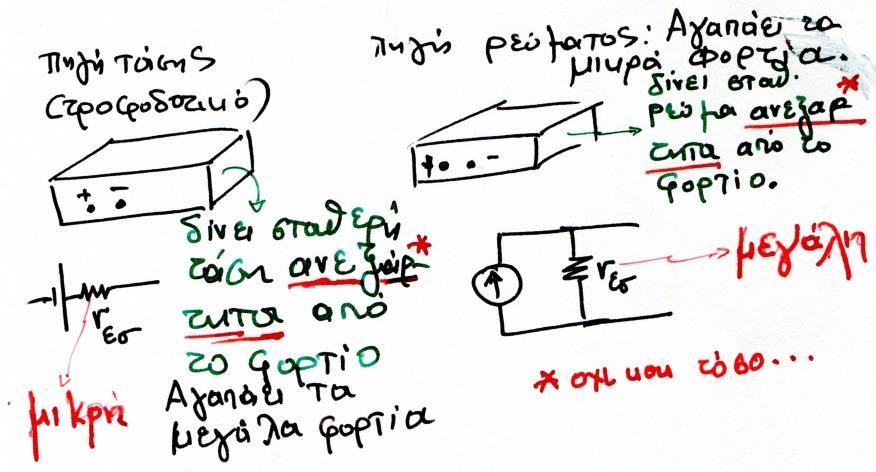 πηγή τάσης
(τροφοδοτικό)
+ -
δίνει σταθερή
τάση ανεξάρ*
τητα από
το φορτίο
Αγαπάει τα
μεγάλα φορτία
rεσ
μικρή
πηγή ρεύματος: Αγαπάει τα
μικρά φορτία.
δίνει σταθ.
ρεύμα ανεξαρ*
τητα από το
φορτίο.
+ -
rεσ
μεγάλη
* οχι και τόσο...